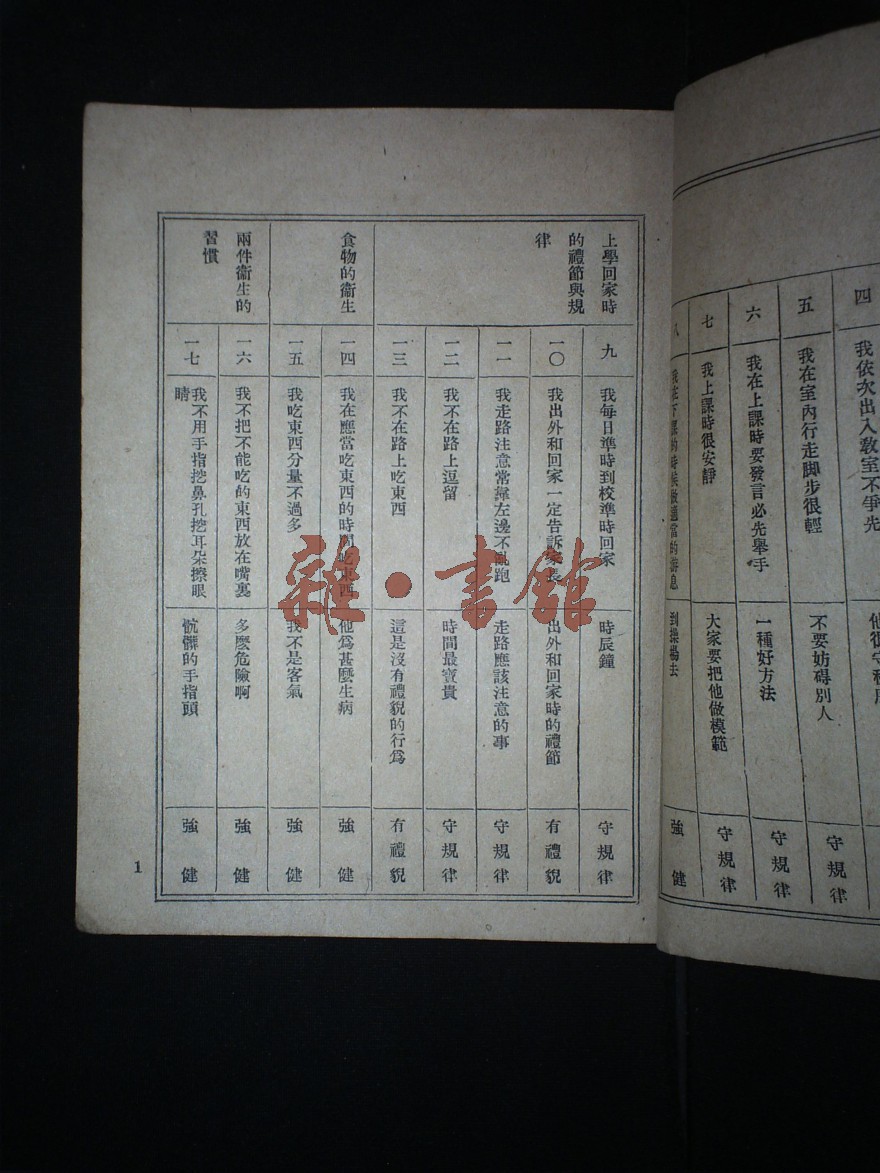 四
我依次出入教室不爭先
五
我在室內行走脚步很輕
不要妨碍別人
守規律
六
我在上課時要發言必先舉手
一種好方法
守規律
七
我上課時很安靜
大家要把他做模範
守規律
八
我在下課的時候做適當的游息
到操場去
強健
上學回家時
的禮節與規
律
九
我每日準時到校準時回家
時辰鐘
守規律
一〇
我出外和回家一定告訴家長
出外和回家時的禮節
有禮貌
一一
我走路注意常靠左邊不亂跑
走路應該注意的事
守規律
一二
我不在路上逗留
時間最寶貴
守規律
一三
我不在路上吃東西
這是沒有禮貌的行爲
有禮貌
食物的衞生
一四
我在應當吃東西的時間吃東西
他爲甚麼生病
強健
一五
我吃東西分量不過多
我不是客氣
強健
兩件衞生的
習慣
一六
我不把不能吃的東西放在嘴裏
多麽危險啊
強健
一七
我不用手指挖鼻孔挖耳朵擦眼
睛
骯髒的手指頭
強健
1
雜·書館